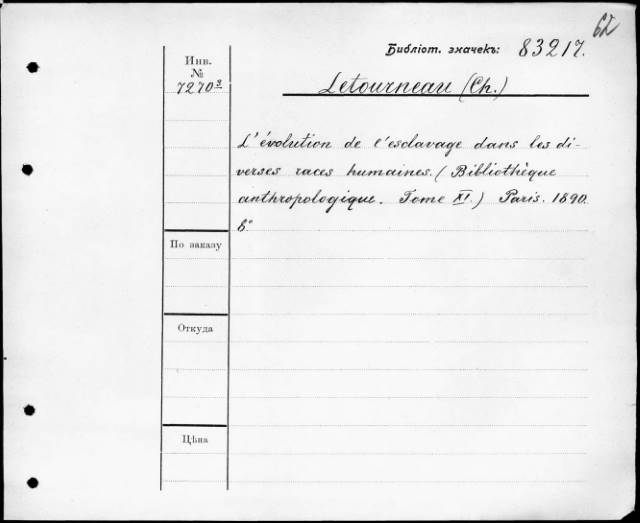 62
Библіот. значекъ: 83217.
Инв.
№
7270³
Letourneau (Ch.)
L'évolution de l'esclavage dans les di-
verses races humaines. (Bibliothèque
anthropologique. Tome XI.) Paris. 1890.
8°
По заказу
Откуда
Цѣна